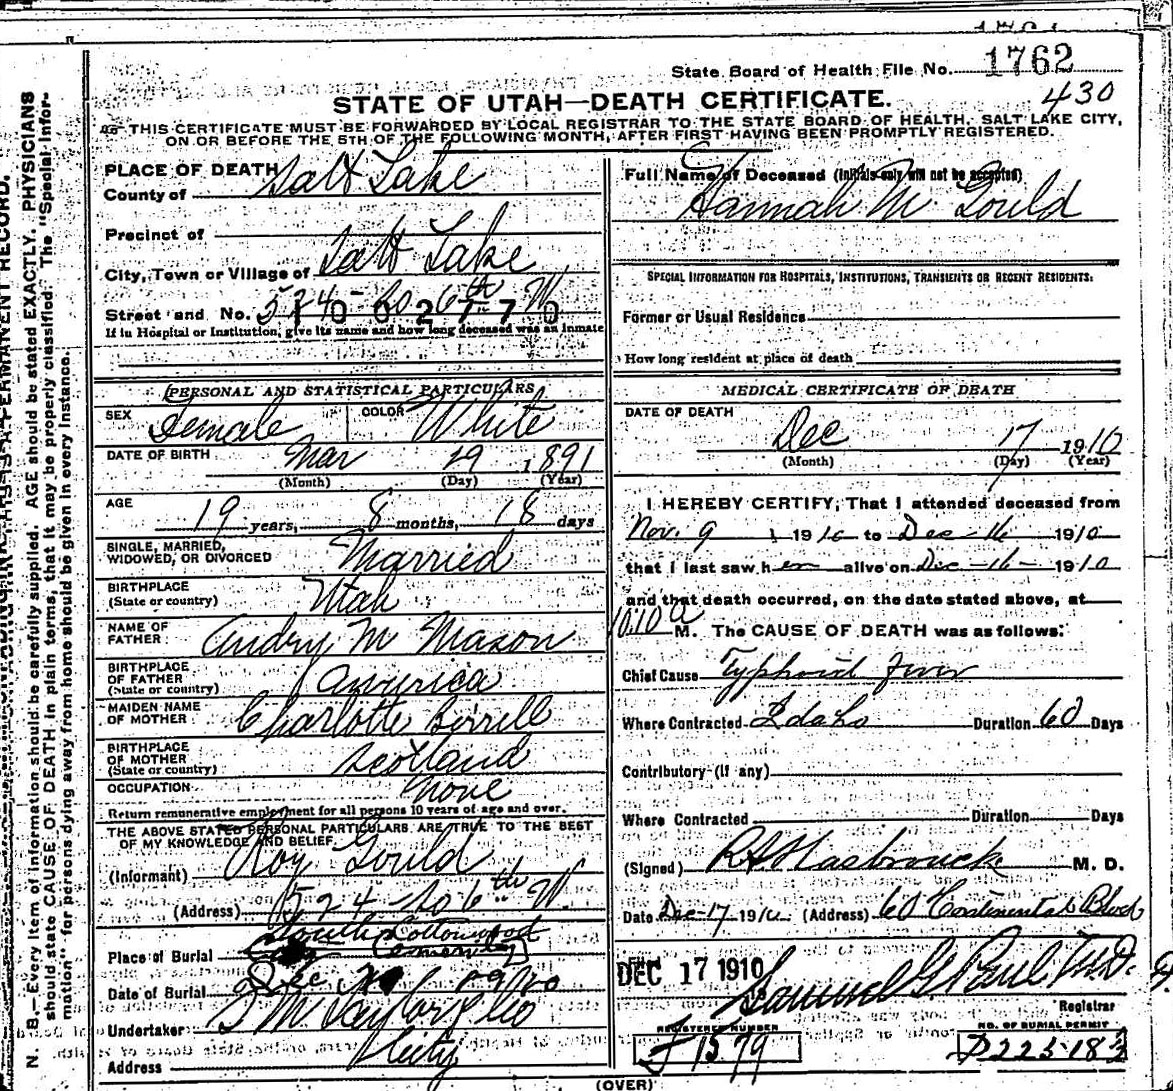 1762
State Board of Health File No.
430
STATE OF UTAH—DEATH CERTIFICATE.
THIS CERTIFICATE MUST BE FORWARDED BY LOCAL REGISTRAR TO THE STATE BOARD OF HEALTH, SALT LAKE CITY,
ON OR BEFORE THE 5TH OF THE FOLLOWING MONTH, AFTER FIRST HAVING BEEN PROMPTLY REGISTERED.
PLACE OF DEATH
County of Salt Lake
Precinct of
City, Town or Village of Salt Lake
Street and No. 524 So 6th W
1 0 0 2 7 7 0
If in Hospital or Institution, give its name and how long deceased was an inmate
PERSONAL AND STATISTICAL PARTICULARS
SEX Female COLOR White
DATE OF BIRTH Mar 29 1891
(Month) (Day) (Year)
AGE 19 years, 8 months, 18 days
SINGLE, MARRIED,
WIDOWED, OR DIVORCED Married
BIRTHPLACE
(State or country) Utah
NAME OF
FATHER M Mason
BIRTHPLACE
OF FATHER
(State or country) America
MAIDEN NAME
OF MOTHER Charlotte Birrell
BIRTHPLACE
OF MOTHER
(State or country) Scotland
OCCUPATION None
Return remunerative employment for all persons 10 years of age and over.
THE ABOVE STATED PERSONAL PARTICULARS ARE TRUE TO THE BEST
OF MY KNOWLEDGE AND BELIEF.
(Informant) Roy Gould
(Address) 524 So 6th W
Place of Burial South Cottonwood
Cemetery
Date of Burial Dec
Undertaker S M Taylor & Co
Address City
Full Name of Deceased (Initials only will not be accepted)
Hannah M Gould
SPECIAL INFORMATION FOR HOSPITALS, INSTITUTIONS, TRANSIENTS OR RECENT RESIDENTS:
Former or Usual Residence
How long resident at place of death
MEDICAL CERTIFICATE OF DEATH
DATE OF DEATH
Dec 17 1910
(Month) (Day) (Year)
I HEREBY CERTIFY, That I attended deceased from
Nov. 9 1910 to Dec 16 1910
that I last saw her alive on Dec-16- 1910
and that death occurred, on the date stated above, at
10:10 a M. The CAUSE OF DEATH was as follows:
Chief Cause Typhoid Fever
Where Contracted Idaho Duration 60 Days
Contributory (if any)
Where Contracted Duration Days
(Signed) R A Hasbrouck M. D.
Date Dec-17 1910 (Address) 60 Continental Block
DEC 17 1910
Samuel G. Paul M.D.
Registrar
REGISTERED NUMBER
J 1579
NO. OF BURIAL PERMIT
D225-183
(OVER)
N. B.—Every item of information should be carefully supplied. AGE should be stated EXACTLY. PHYSICIANS
should state CAUSE OF DEATH in plain terms, that it may be properly classified. The "Special Infor-
mation" for persons dying away from home should be given in every instance.
PERMANENT RECORD.